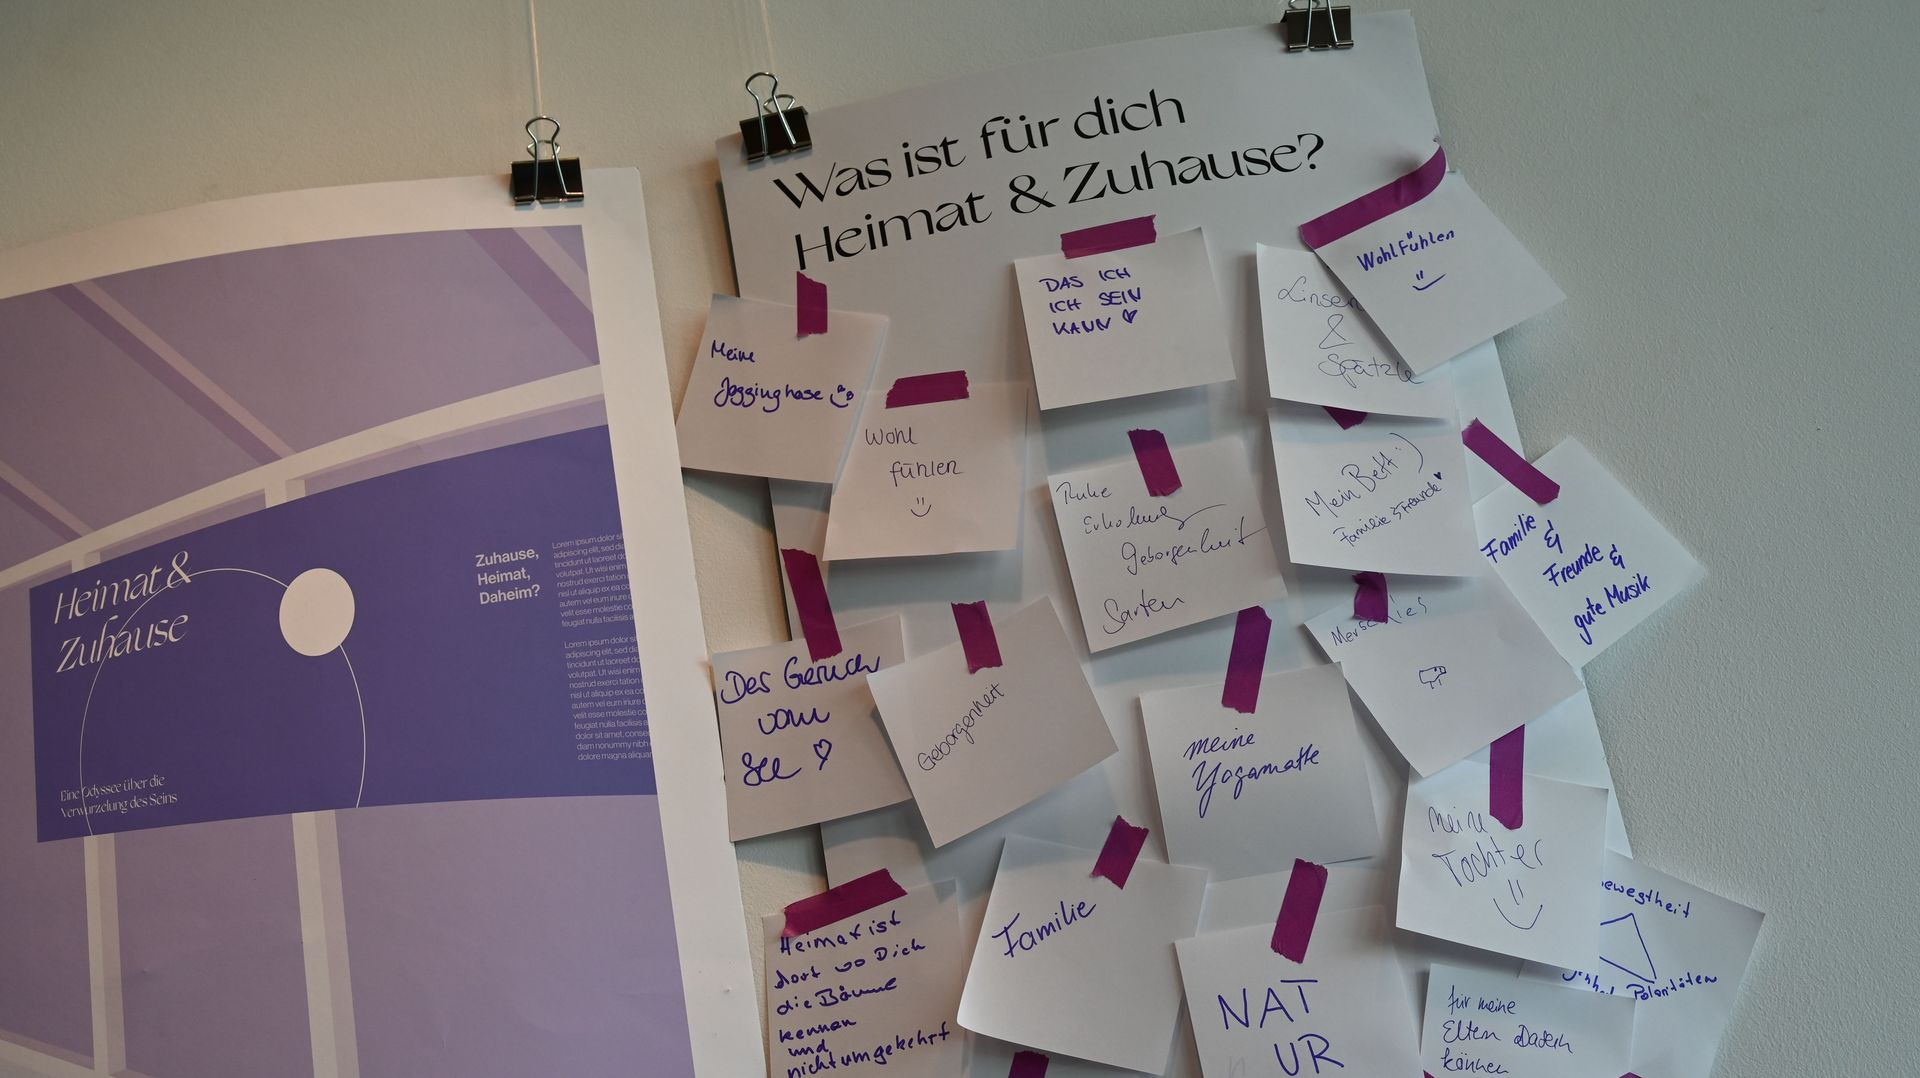 Was ist für dich
Heimat & Zuhause?
Heimat &
Zuhause
Eine Odyssee über die
Verwurzelung des Seins
Zuhause,
Heimat,
Daheim?
Lorem ipsum dolor si
adipiscing elit, sed dia
tincidunt ut laoreet do
volutpat. Ut wisi enim
nostrud exerci tation
nisl ut aliquip ex ea co
autem vel eum iriure d
velit esse molestie co
feugiat nulla facilisis a
Lorem ipsum dolor si
adipiscing elit, sed dia
tincidunt ut laoreet do
volutpat. Ut wisi enim
nostrud exerci tation
nisl ut aliquip ex ea co
autem vel eum iriure d
velit esse molestie co
feugiat nulla facilisis a
dolor sit amet, conse
diam nonummy nibh
dolore magna aliqua
Meine
Jogginghose
Wohl
fühlen
DAS ICH
ICH SEIN
KANN
Linsen
&
Spätzle
Wohlfühlen
Ruhe
Erholung
Geborgenheit
Garten
Mein Bett :)
Familie & Freunde
Familie
&
Freunde &
gute Musik
Der Geruch
vom
See
Geborgenheit
meine
Yogamatte
meine
Tochter
Heimat ist
dort wo Dich
die Bäume
kennen
und
nicht umgekehrt
Familie
NAT
UR
ewegtheit
Polaritäten
für meine
Eltern Dasein
können